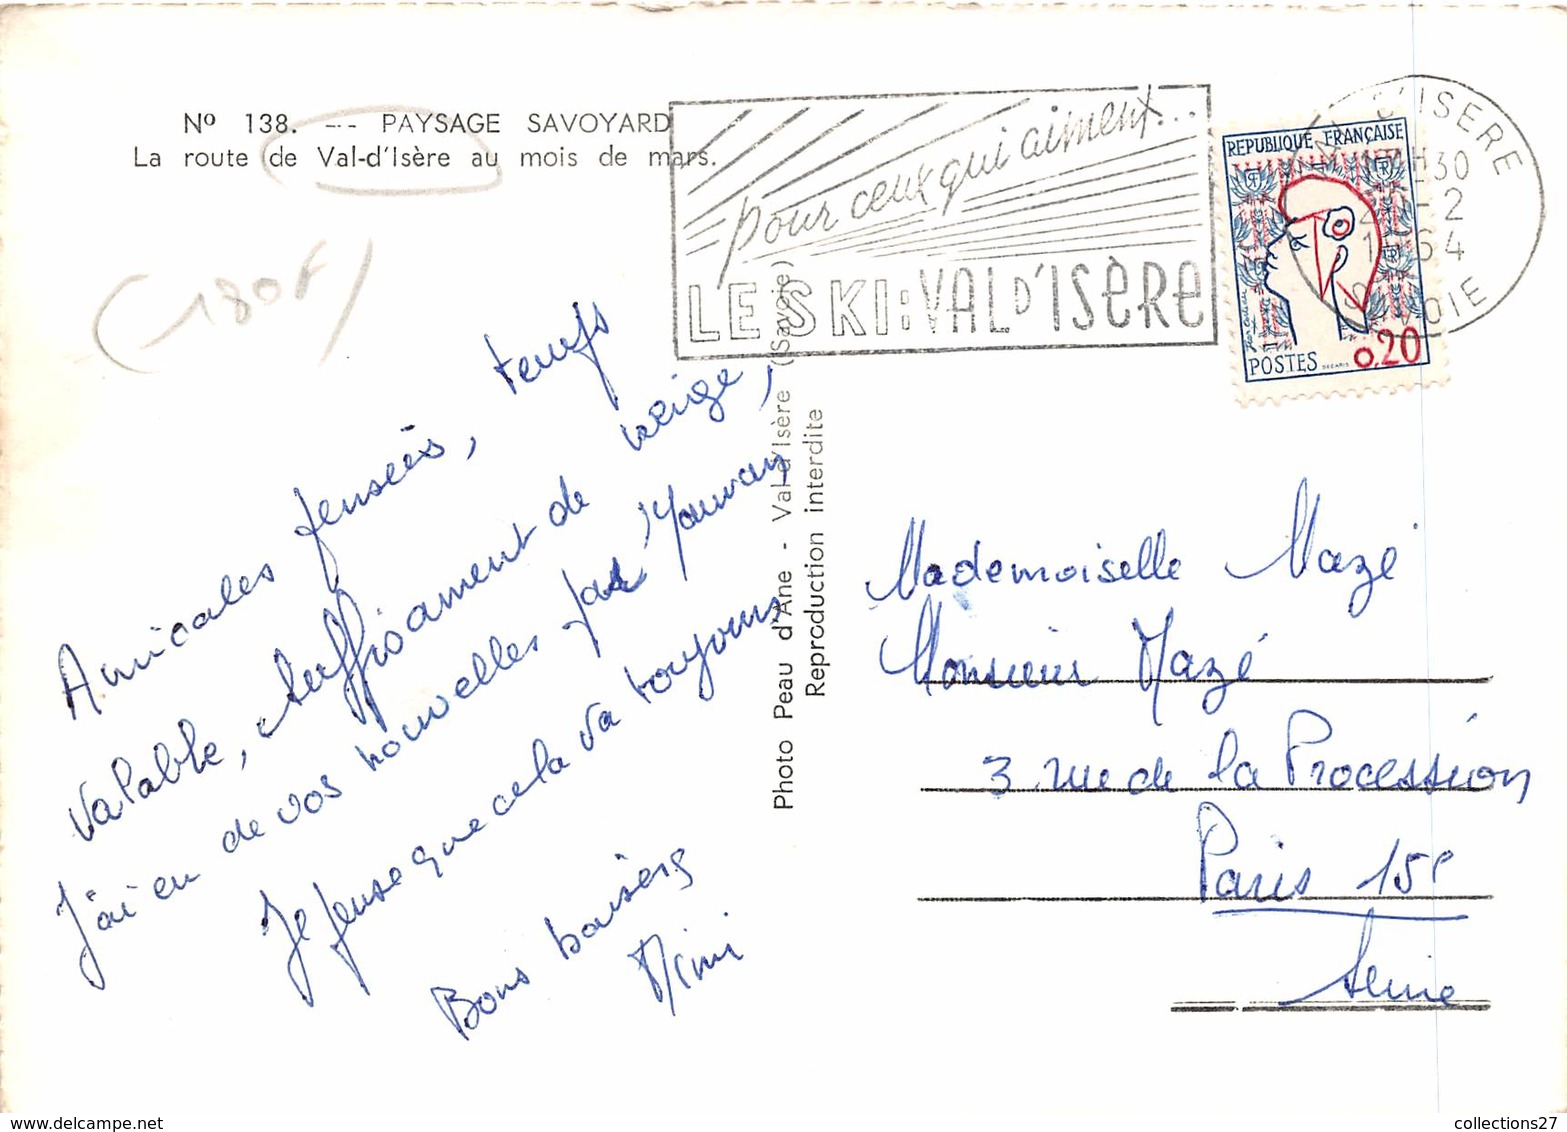 Nº 138. — PAYSAGE SAVOYARD
La route de Val-d'Isère au mois de mars.
(180F)
pour ceux qui aiment...
LE SKI : VAL D'ISÈRE
VAL D'ISERE
H30
-2
1964
SAVOIE
REPUBLIQUE FRANÇAISE
POSTES
DECARIS
0,20
Amicales pensées, temps
valable, suffisament de neige,
J'ai eu de vos nouvelles par Yauvan
Je pense que cela va toujours
Bons baisers
Mimi
Photo Peau d'Ane - Val-d'Isère (Savoie)
Reproduction interdite
Mademoiselle Mazé
Monsieur Mazé
3 rue de la Procession
Paris 15e
Seine
collections27